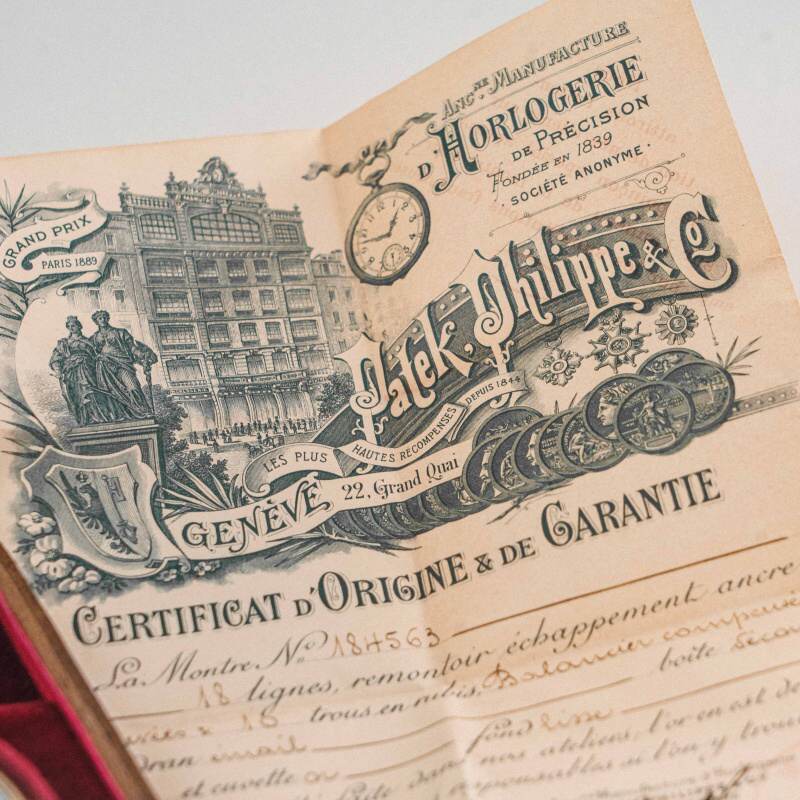 GRAND PRIX
PARIS 1889
ANC.NE MANUFACTURE
D'HORLOGERIE
DE PRÉCISION
FONDÉE EN 1839
SOCIÉTÉ ANONYME.
Patek, Philippe & Co
LES PLUS HAUTES RECOMPENSES DEPUIS 1844
GENÈVE 22, Grand Quai
CERTIFICAT D'ORIGINE & DE GARANTIE
La Montre No 184563
18 lignes, remontoir échappement ancre
15 trous en rubis. Balancier
boîte
email fond lisse
et cuvette or nos ateliers, l'or en est de
responsables si l'on y